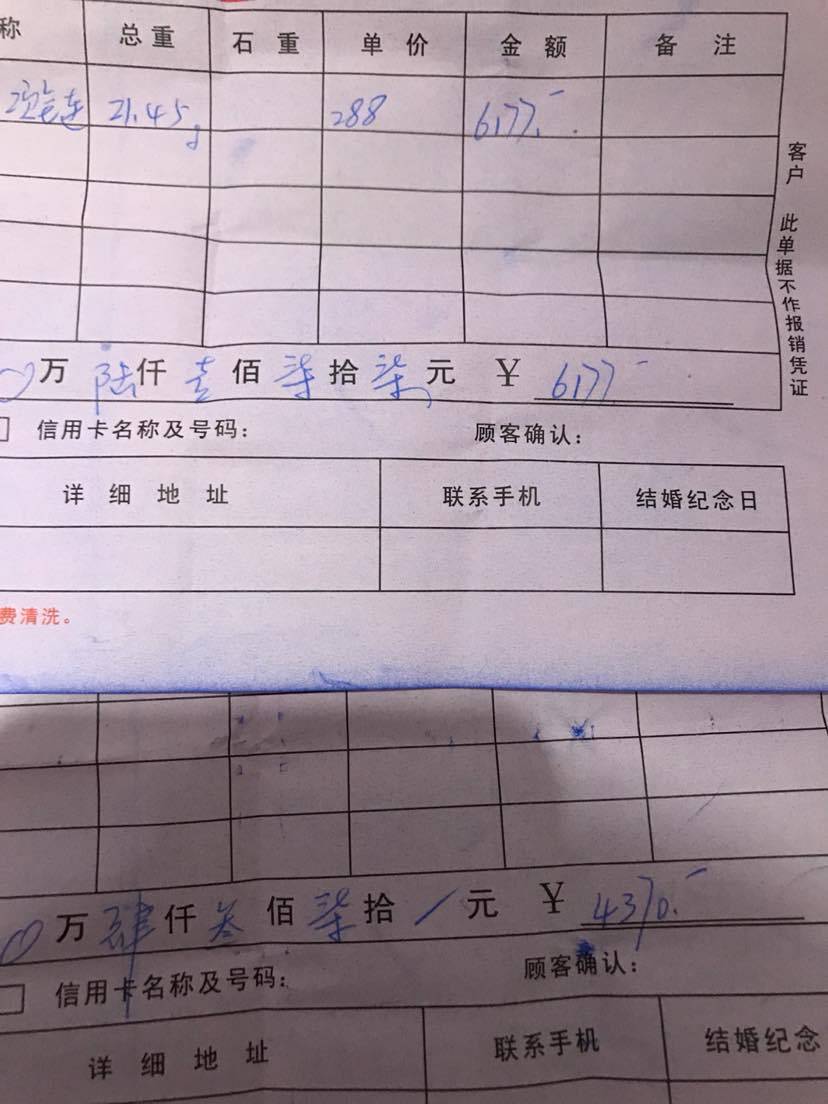 称 总重 石重 单价 金额 备注
21.45g 288 6177.-
客户 此单据不作报销凭证
0万陆仟壹佰柒拾柒元 ¥ 6177-
信用卡名称及号码: 顾客确认:
详细地址 联系手机 结婚纪念日
费清洗。
0万肆仟叁佰柒拾/元 ¥ 4370.-
信用卡名称及号码: 顾客确认:
详细地址 联系手机 结婚纪念